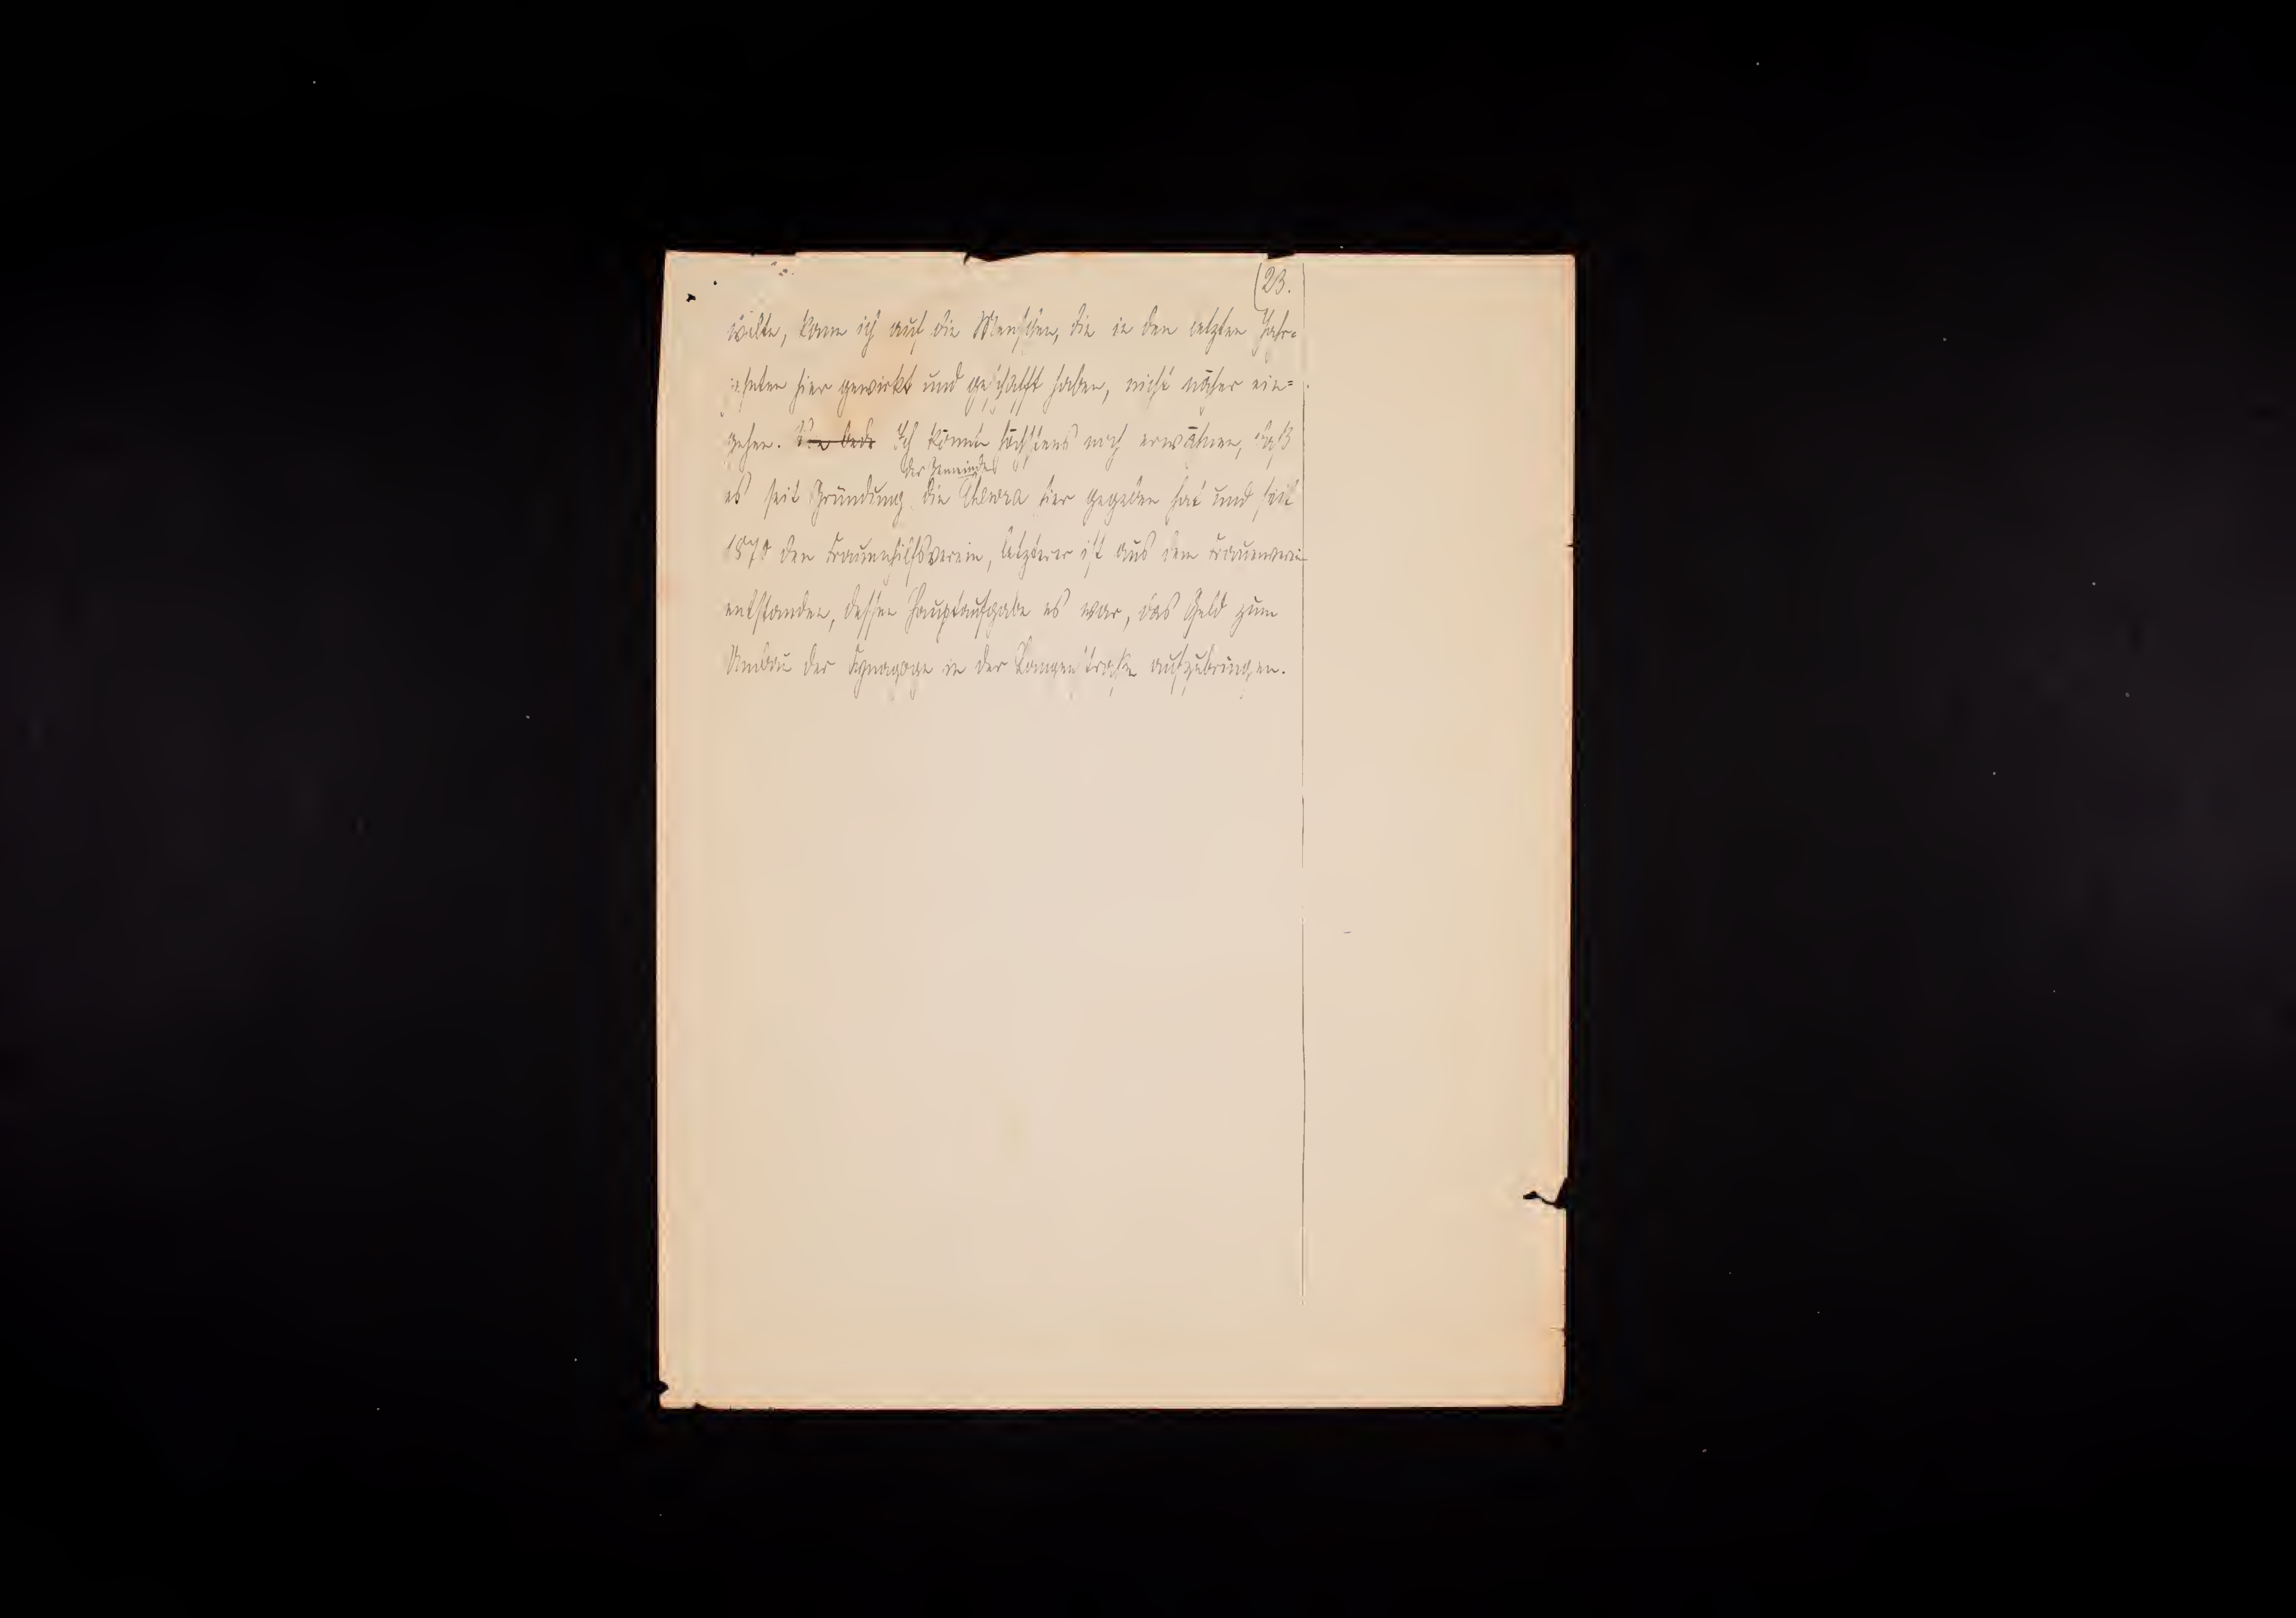 (23.
wollte, kann ich auf die Menschen, die in den letzten Jahr-
zehnten hier gewirkt und geschafft haben, nicht näher ein=
gehen. Ich könnte höchstens noch erwähnen, daß
der Gemeinde
es seit Gründung die Chewra hier gegeben hat und seit
1870 den Frauenhilfsverein, letzterer ist aus dem Frauenverein
entstanden, dessen Hauptaufgabe es war, das Geld zum
Umbau der Synagoge in der Langenstraße aufzubringen.